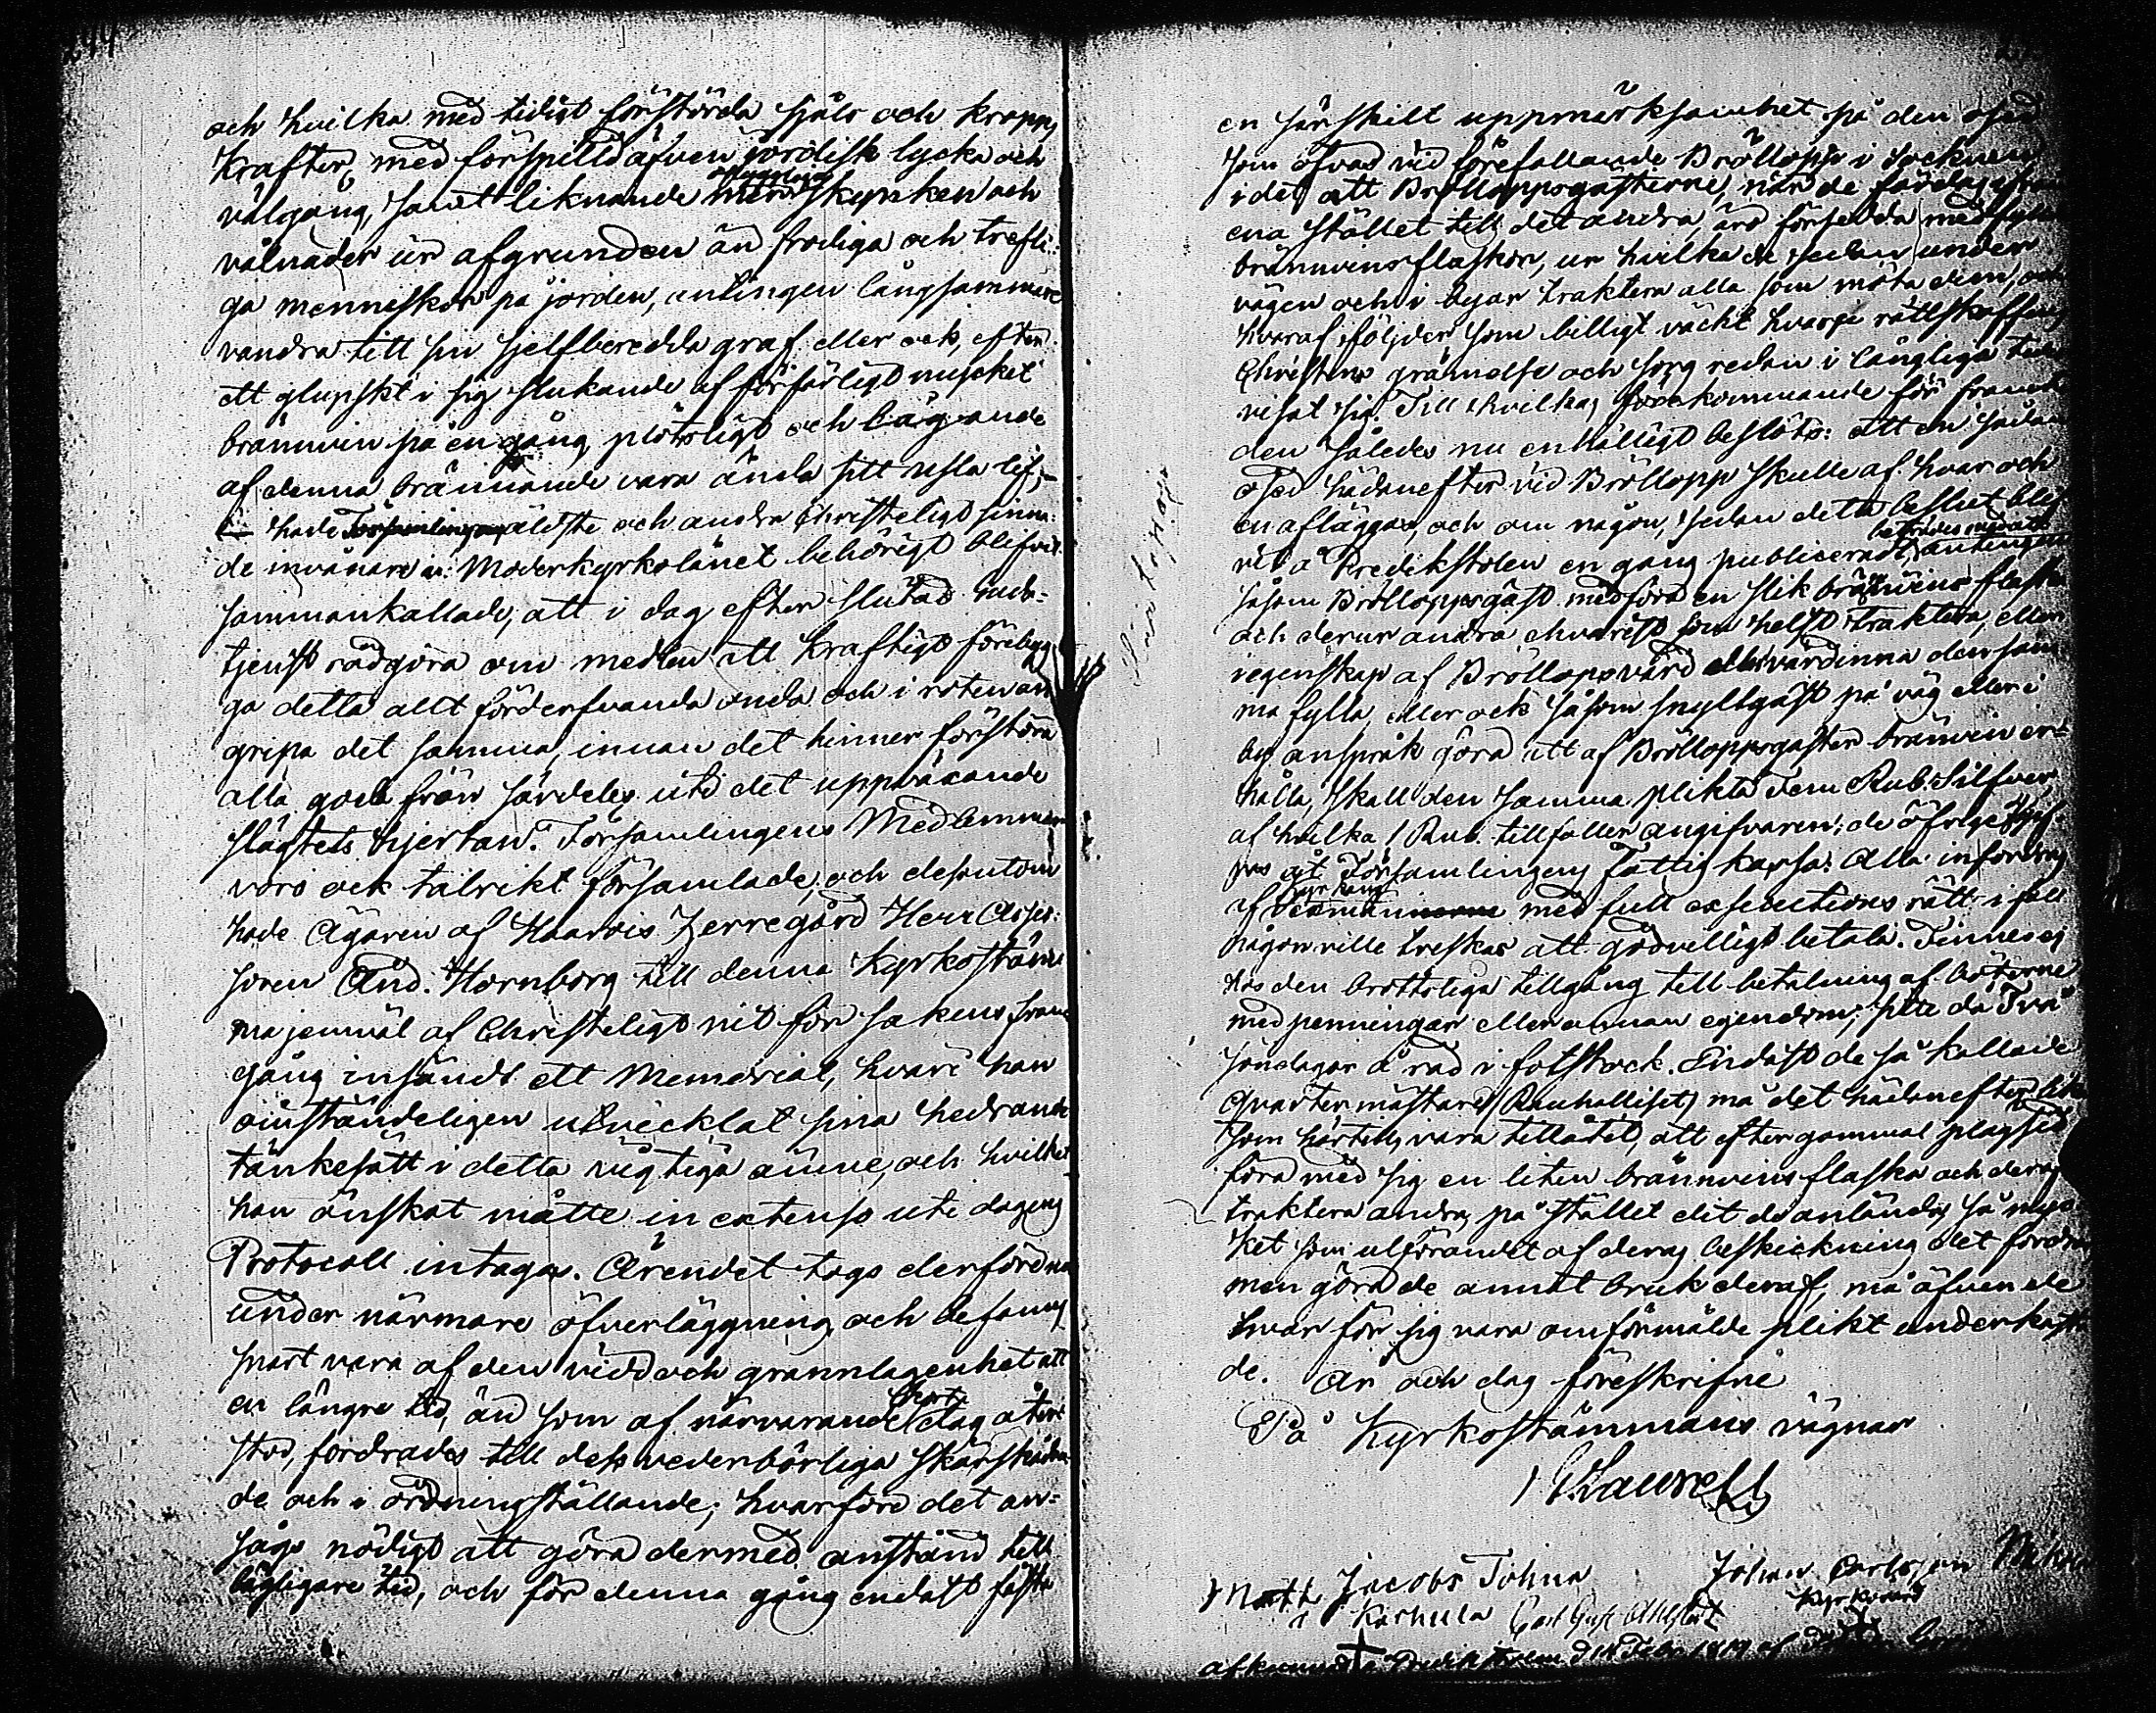 och hvilka med tidigt förstörda själs och kropps
Krafter, med förspilld äfven jordisk lycka och
välgång, samt liknande mera skepsken och
vålnader ur afgrunden än frodiga och trefli-
ga menniskor på jorden, antingen långsammare
vandra till sin sjelfberedda graf eller ock, efter
ett glupskt i sig slukande af förfärligt mycket
brännvin på en gång, plötsligt och
af denna brännande vara ända sitt usla lif;-
hade Församlingens äldste och andra Christeligt sinna-
de invånare i Moderkyrkolänet behörigt blifvit
sammankallade, att i dag efter slutad Guds-
tjenst rådgöra om medlen att kraftigt förebyg-
ga detta allt förderfvande onda och i roten an-
gripa det samma, innan det hinner förstöra
alla goda frön särdeles uti det uppväxande
slägtets hjertan. Församlingens Medlemmar
voro ock talrikt församlade, och desutom
hade Ägaren af Haarois Herregård Herr Asses-
soren And. Hornborg till denna Kyrkostäm-
ma jemväl af Christeligt nit för sakens fram-
gång insändt ett Memorial, hvari han
omständeligen utvecklat sina hedrande
tänkesätt i detta vigtiga ämne, och hvilket
han önskat måtte in extenso uti dagens
Protocoll intagas. Ärendet togs derföre nu
under närmare öfverläggning och befanns
snart vara af den vidd och grannlagenhet att
en längre tid, än som af närvarande korta dag åter-
stod, fordrades till dess vederbörliga skärskådan-
de och i ordningställande; hvarföre det an-
sågs nödigt att göra dermed anstånd till
lägligare tid, och för denna gång endast fästa
en särskilt uppmärksamhet på den osed
som öfvas vid förefallande Bröllopp i Socknen
i det att Brölloppsgästerne, när de färdas ifrån
ena stället till det andra, äro försedda med fyllda
brännvinsflaskor, ur hvilka de sedan under
vägen och i byar traktera alla som möta dem, och
hvaraf följder som billigt väckt hvarje rättskaffens
Christens grämelse och sorg redan i långliga tider
visat sig. Till hvilkas förekommande för framti-
den således nu enhälligt beslöts: att en sådan
osed hädanefter vid Bröllopp skulle af hvar och
en afläggas, och om någon, sedan detta beslut blif-
vit å Predikstolen en gång publiceradt, beträdes med att antingen
såsom Brölloppsgäst medföra en slik brännvins flaska
och derur andra ehvarest som helst traktera, eller
i egenskap af Bröllopsvärd eller värdinna densam-
ma fylla, eller ock såsom snyltgäst på väg eller i
by anspråk göra att af Brölloppsgäster brännvin er-
hålla, skall den samma plikta Fem Rub. Silfver,
af hvilka 1 Rub. tillfaller angifvaren, de öfrige
åt Församlingens Fattig kassa. Alla infordras
af Sexmännerne med full exsecutions rätt i fall
någon ville treskas att godvilligt betala. Finnes ej
hos den brottsliga tillgång till betalning af böterne
med penningar eller annan egendom; sitte då Två
söndagar å rad i fotstock. Endast de så kallade
Qvartermästare (Rauhalliset) må det hädanefter lika
som härtills vara tillåtet, att efter gammal plägsed
föra med sig en liten brännvins flaska och deraf
traktera andra på stället dit de anlända, så myc-
ket som utförandet af deras beskickning det fordrar,
men göra de annat bruk deraf, må äfven de
hvar för sig vara omförmälde plikt underkasta-
de. År och dag föreskrifne
På Kyrkostämmans vägnar
Laurell
Matts Jacobs Johna
Johan Carlsson
Karhula Carl Gust Ahlstedt
Kyrkovärd